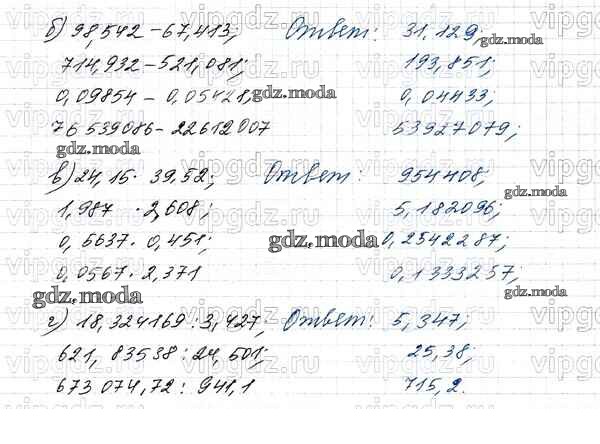 б) 98,542 – 67,413; Ответ: 31,129;
714,932 – 521,081; 193,851;
0,09854 – 0,05421; 0,04433;
76539086 – 22612007 53927079;
в) 24,15 · 39,52; Ответ: 954408;
1,987 · 2,608; 5,182096;
0,5637 · 0,451; 0,2542287;
0,0567 · 2,371 0,1333257;
г) 18,324169 : 3,427; Ответ: 5,347;
621,83538 : 24,501; 25,38;
673074,72 : 941,1 715,2.
gdz.moda
gdz.moda
gdz.moda
gdz.moda
gdz.moda
gdz.moda
gdz.moda
gdz.moda
vipgdz.ru